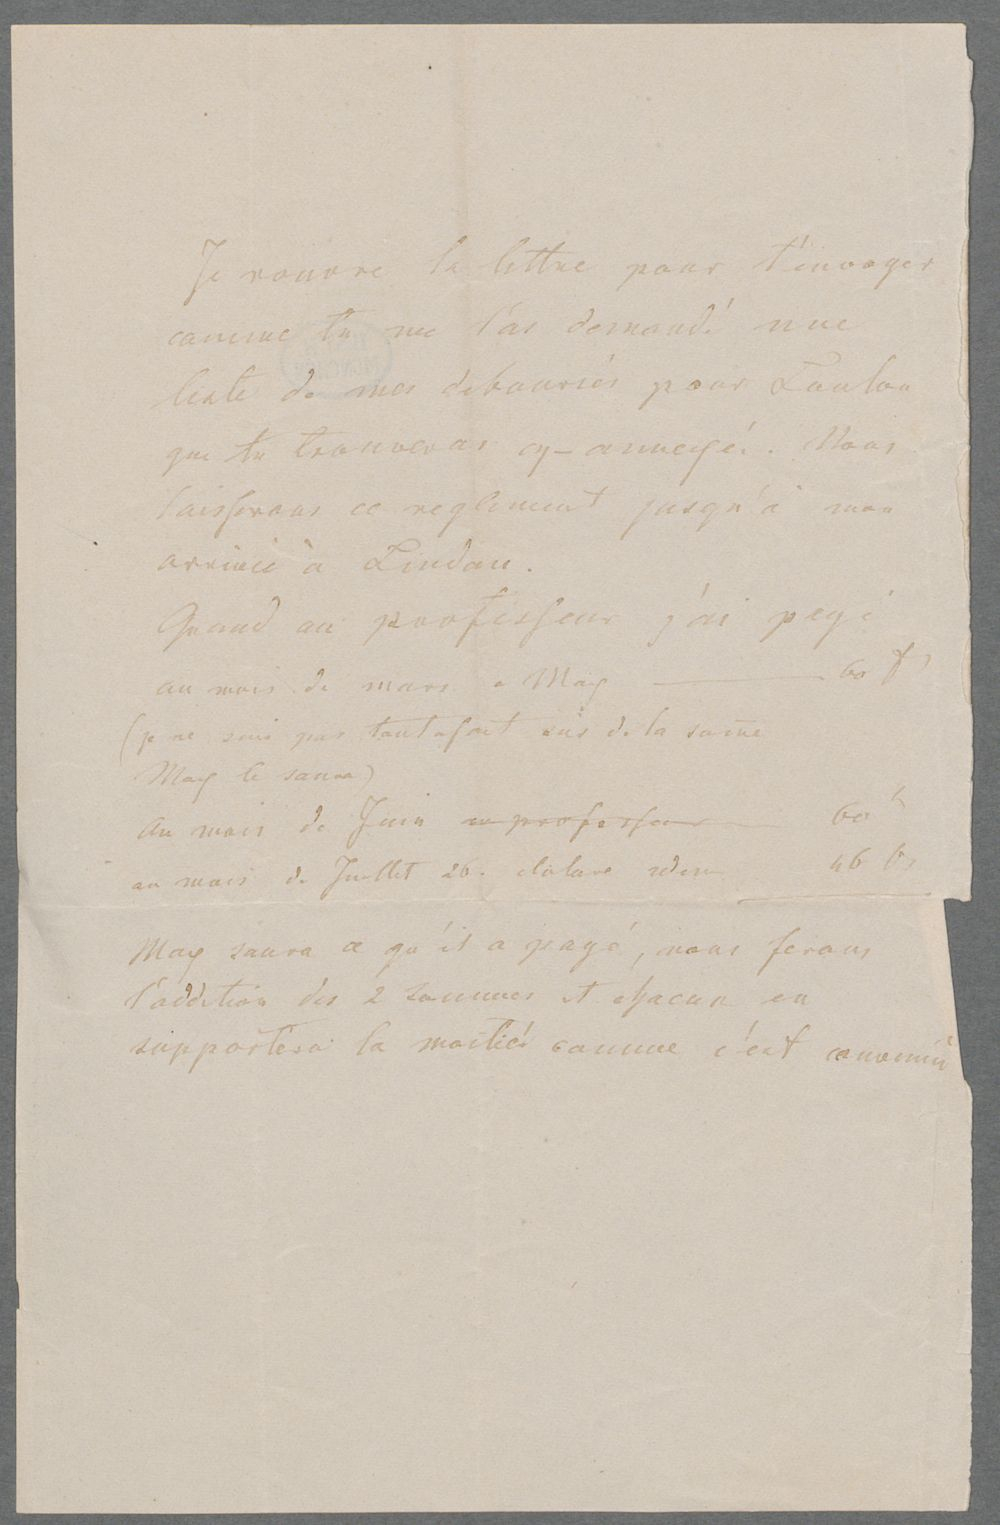 Je rouvre la lettre pour t'envoyer
comme tu me l'as demandé une
liste de mes deboursés pour Toulon
que tu trouveras cy-annexée. Nous
laisserons ce reglement jusqu'à mon
arrivée à Lindau.
Quand au professeur j'ai payé
au mois de mars a May 60 f
(je ne suis pas toutafait sûs de la some
May le saura)
au mois de Juin au professeur 60
au mois de Juillet 26. 46 fr
May saura ce qu'il a payé, nous ferons
l'addition des 2 sommes et chacun en
supportera la moitiée comme c'est convenu